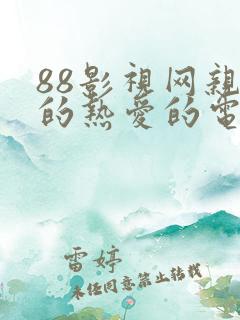 88影視网親
的热爱的電
雷婷
未经同意禁止转载